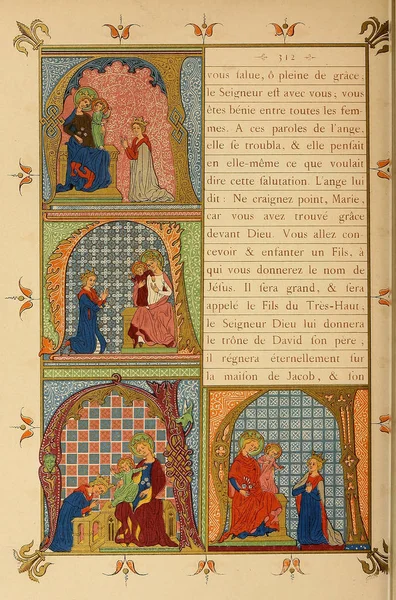 312
vous salue, ô pleine de grâce;
le Seigneur est avec vous; vous
êtes bénie entre toutes les fem-
mes. A ces paroles de l'ange,
elle se troubla, & elle pensait
en elle-même ce que voulait
dire cette salutation. L'ange lui
dit : Ne craignez point, Marie,
car vous avez trouvé grâce
devant Dieu. Vous allez con-
cevoir & enfanter un Fils, à
qui vous donnerez le nom de
Jésus. Il sera grand, & sera
appelé le Fils du Très-Haut,
le Seigneur Dieu lui donnera
le trône de David son père,
il régnera éternellement sur
la maison de Jacob, & son